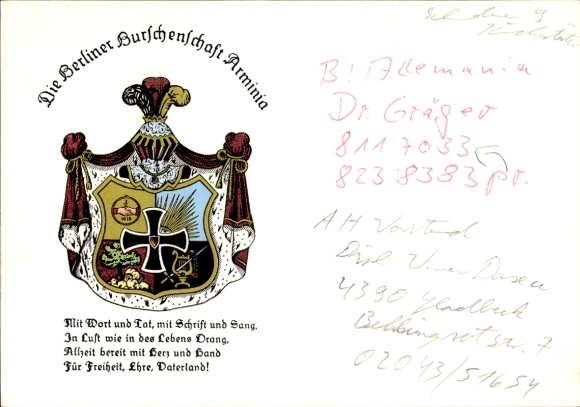 Die Berliner Burschenschaft Arminia
Mit Wort und Tat, mit Schrift und Sang,
In Lust wie in des Lebens Drang,
Allzeit bereit mit Herz und Hand
Für Freiheit, Ehre, Vaterland!
1818
B! Allemania
Dr. Gräger
8117033
8238383 pr.
AH Vorstand
4390 Gladbeck
Str. 7
02043/51654